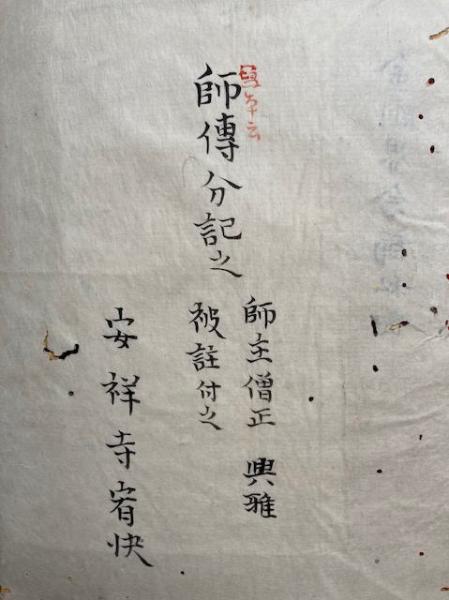 寫本云
師傳分記之
師主僧正 興雅
被註付之
安祥寺宥快